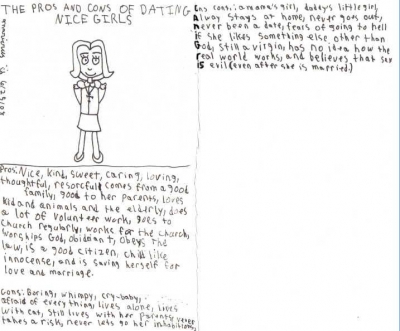 THE PROS AND CONS OF DATING
NICE GIRLS
Pros: Nice, kind, sweet, caring, loving,
thoughtful, resorcful comes from a good
family, good to her parents, loves
kid and animals and the elderly, does
a lot of volunteer work, goes to
church regularly, works for the church,
worships God, obidiant, obeys the
law, is a good citizen, child like
innocense, and is saving herself for
love and marriage.
Cons: Boring, whimpy, cry-baby,
afraid of everything, lives alone, lives
with cat, still lives with her parents never
takes a risk, never lets go her inhabitions,
cons: a mama's girl, daddy's little girl,
Alway stays at home, never goes out,
never been a date, fears of going to hell
if she likes something else other than
God, still a virgin, has no idea how the
real world works, and believes that sex
is evil (even after she is married.)